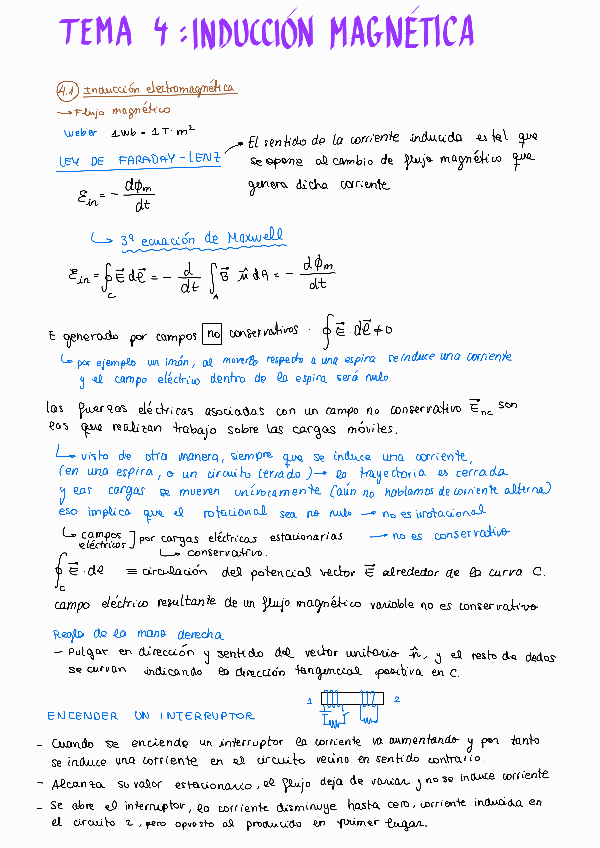 TEMA 4: INDUCCIÓN MAGNÉTICA
4.1 Inducción electromagnética
→ Flujo magnético
Weber 1Wb = 1T·m²
LEY DE FARADAY-LENZ
→ El sentido de la corriente inducida es tal que
se opone al cambio de flujo magnético que
genera dicha corriente
Ɛin = - dϕm/dt
↳ 3ª ecuación de Maxwell
Ɛin = ∮c E⃗ dl⃗ = - d/dt ∫A B⃗ n⃗ dA = - dϕm/dt
E generado por campos no conservativos · ∮ E⃗ · dl⃗ ≠ 0
↳ por ejemplo un imán, al moverlo respecto a una espira se induce una corriente
y el campo eléctrico dentro de la espira será nulo
las fuerzas eléctricas asociadas con un campo no conservativo E⃗nc son
las que realizan trabajo sobre las cargas móviles.
↳ visto de otra manera, siempre que se induce una corriente,
(en una espira, o un circuito cerrado) → la trayectoria es cerrada
y las cargas se mueven unívocamente (aún no hablamos de corriente alterna)
eso implica que el rotacional sea no nulo → no es irrotacional
↳ campos eléctricos] por cargas eléctricas estacionarias → no es conservativo
↳ conservativo.
∮c E⃗ · dl ≡ circulación del potencial vector E⃗ alrededor de la curva C.
campo eléctrico resultante de un flujo magnético variable no es conservativo
Regla de la mano derecha
- Pulgar en dirección y sentido del vector unitario n̂, y el resto de dedos
se curvan indicando la dirección tangencial positiva en C.
1 2
ENCENDER UN INTERRUPTOR
- Cuando se enciende un interruptor la corriente va aumentando y por tanto
se induce una corriente en el circuito vecino en sentido contrario.
- Alcanza su valor estacionario, el flujo deja de variar y no se induce corriente
- Se abre el interruptor, la corriente disminuye hasta cero, corriente inducida en
el circuito 2, pero opuesto al producido en primer lugar.